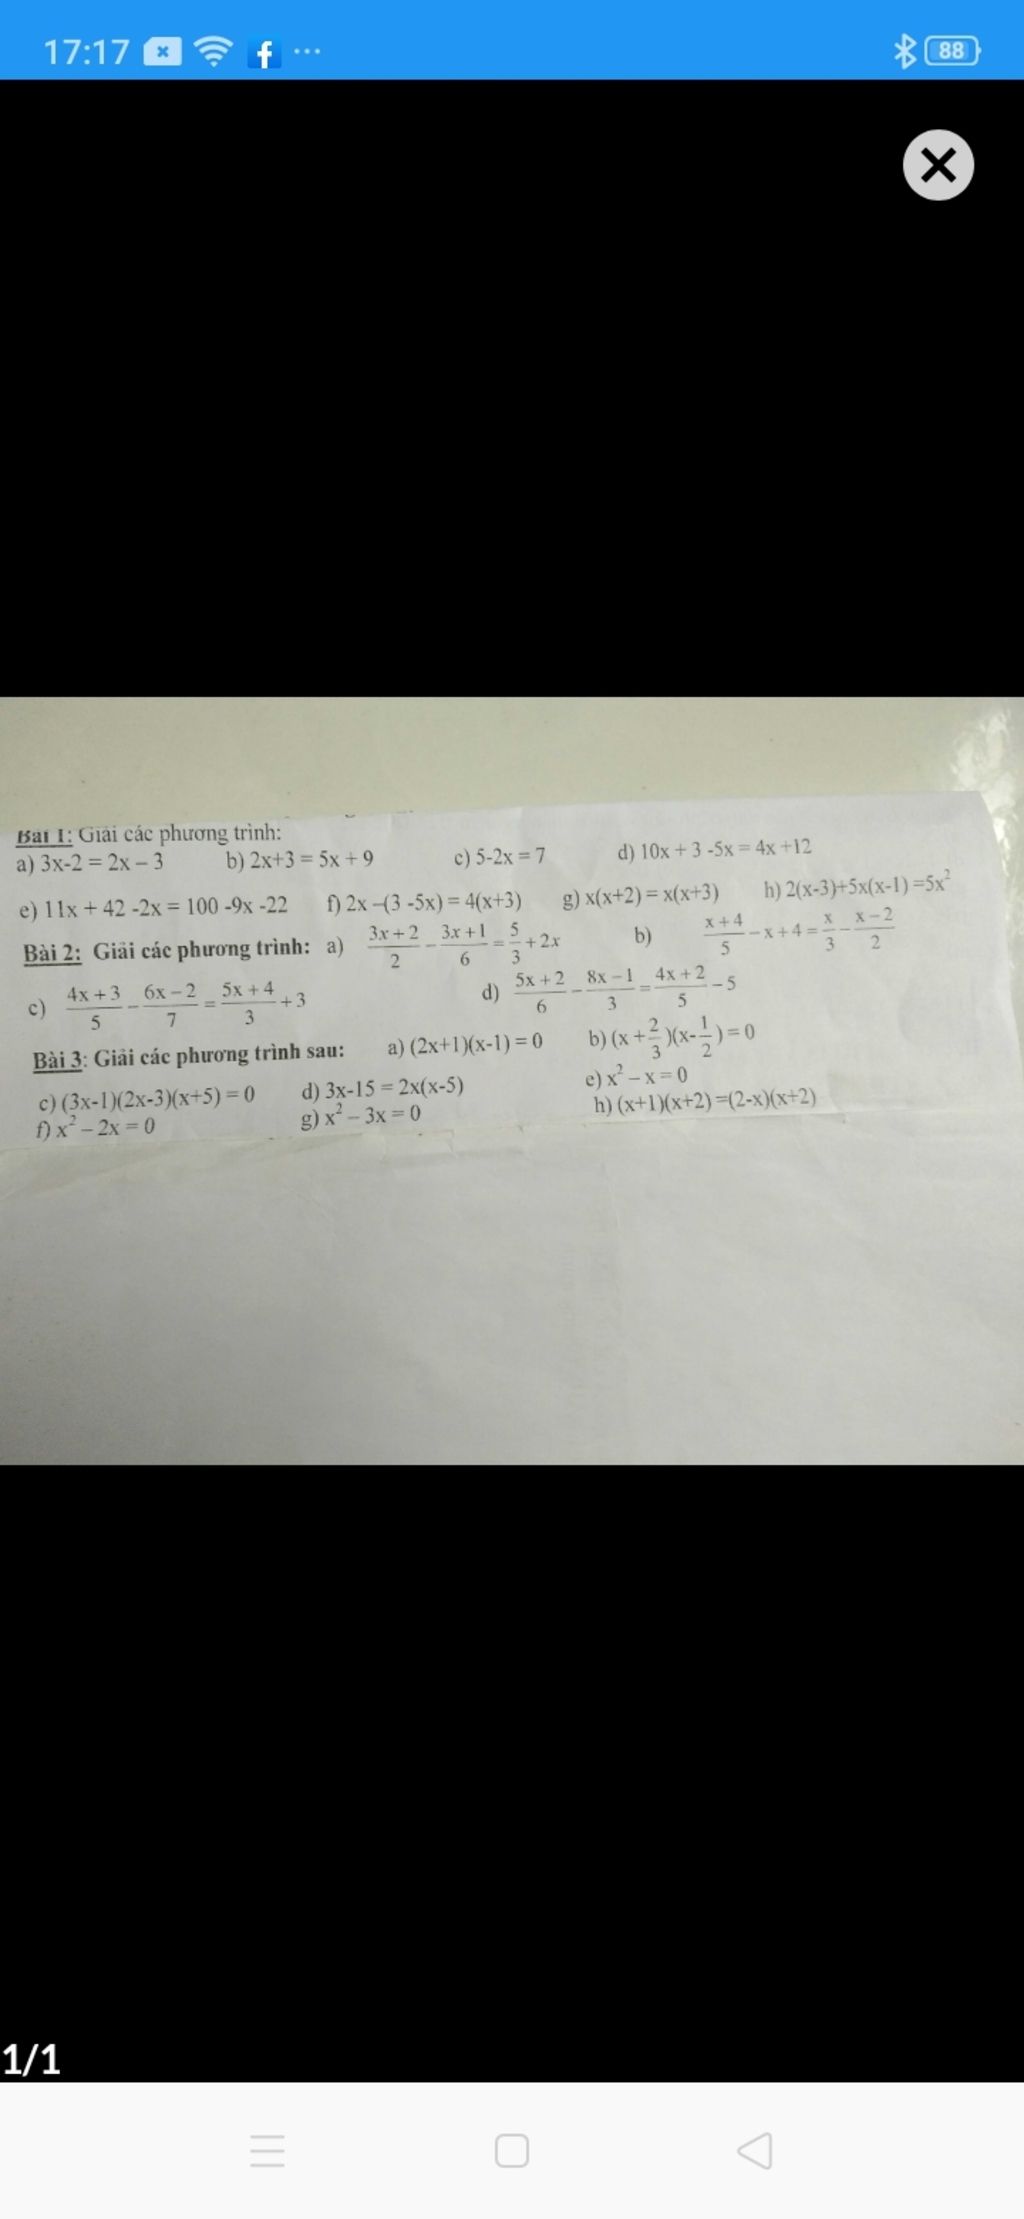 17:17 f ... 88
Bài 1: Giải các phương trình:
a) 3x-2 = 2x – 3 b) 2x+3 = 5x + 9 c) 5-2x = 7 d) 10x + 3 -5x = 4x +12
e) 11x + 42 -2x = 100 -9x -22 f) 2x –(3 -5x) = 4(x+3) g) x(x+2) = x(x+3) h) 2(x-3)+5x(x-1) =5x²
Bài 2: Giải các phương trình: a) (3x+2)/2 - (3x+1)/6 = 5/3 + 2x b) (x+4)/5 - x + 4 = x/3 - (x-2)/2
c) (4x+3)/5 - (6x-2)/7 = (5x+4)/3 + 3 d) (5x+2)/6 - (8x-1)/3 = (4x+2)/5 - 5
Bài 3: Giải các phương trình sau: a) (2x+1)(x-1) = 0 b) (x + 2/3)(x- 1/2) = 0
c) (3x-1)(2x-3)(x+5) = 0 d) 3x-15 = 2x(x-5) e) x² – x = 0
f) x² – 2x = 0 g) x² – 3x = 0 h) (x+1)(x+2) =(2-x)(x+2)
1/1